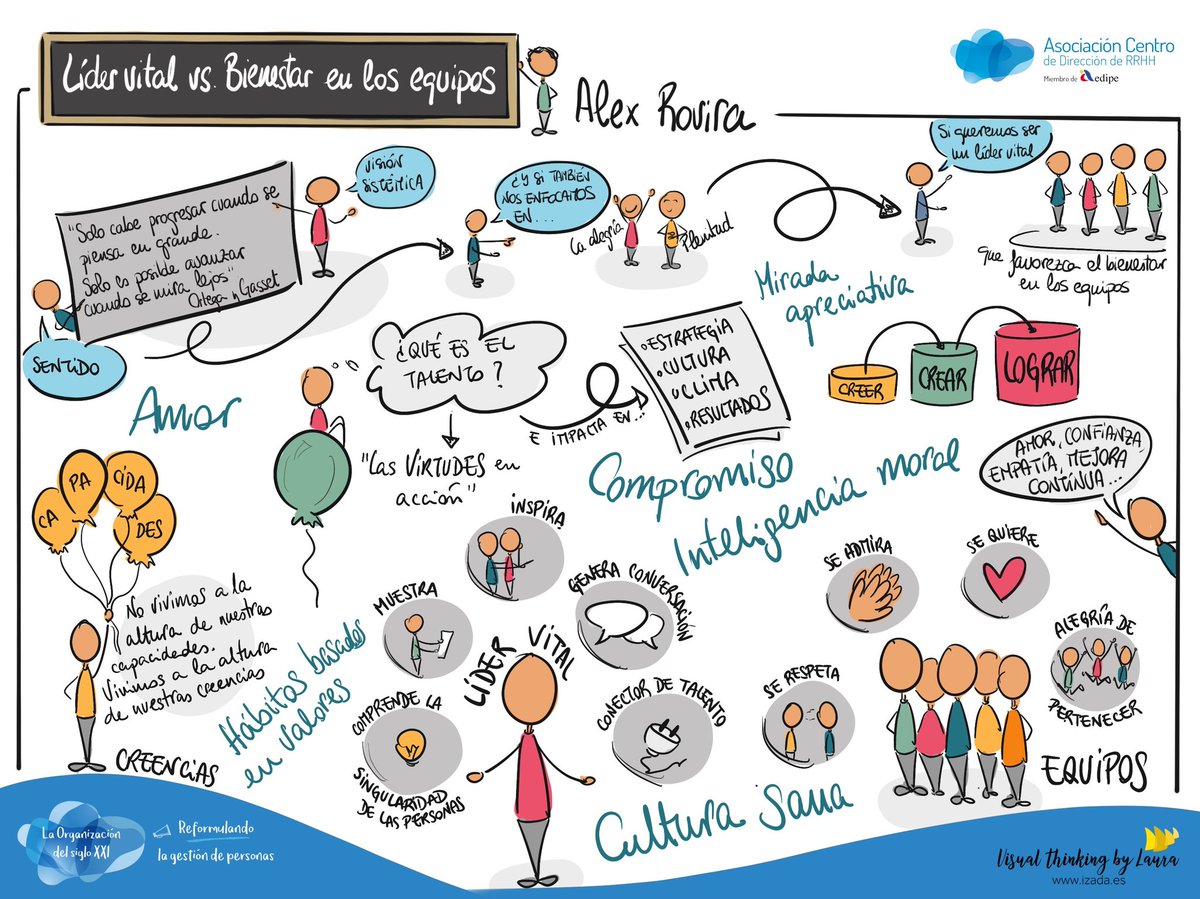 Líder vital vs. Bienestar en los equipos
Alex Rovira
Asociación Centro
de Dirección de RRHH
Miembro de aedipe
"Solo cabe progresar cuando se
piensa en grande.
Solo es posible avanzar
cuando se mira lejos"
Ortega y Gasset
SENTIDO
VISIÓN
SISTÉMICA
¿Y SI TAMBIÉN
NOS ENFOCAMOS
EN...
La alegría
Plenitud
Si queremos ser
un líder vital
que favorezca el bienestar
en los equipos
Mirada
apreciativa
Amor
¿QUÉ ES EL
TALENTO?
"Las VIRTUDES en
acción"
E IMPACTA EN...
ESTRATEGIA
CULTURA
CLIMA
RESULTADOS
CREER
CREAR
LOGRAR
Compromiso
Inteligencia moral
AMOR, CONFIANZA,
EMPATÍA, MEJORA
CONTINUA...
CA
PA
CIDA
DES
No vivimos a la
altura de nuestras
capacidades.
Vivimos a la altura
de nuestras creencias
CREENCIAS
Hábitos basados
en valores
LÍDER VITAL
INSPIRA
MUESTRA
GENERA CONVERSACIÓN
COMPRENDE LA
SINGULARIDAD
DE LAS PERSONAS
CONECTOR DE TALENTO
Cultura sana
SE ADMIRA
SE QUIERE
SE RESPETA
ALEGRÍA DE
PERTENECER
EQUIPOS
La Organización
del siglo XXI
Reformulando
la gestión de personas
Visual thinking by Laura
www.izada.es